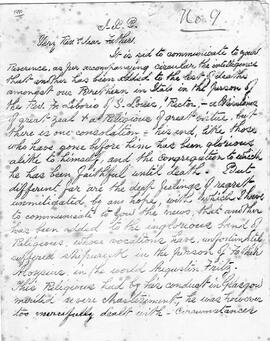 No. 9
Very Rev & dear Father,
It is sad to communicate to your
Reverence, as per accompanying circular the intelligence
that another has been added to the list of deaths
amongst our Brethren in Italy in the person of
the Rev. Fr Liborio of S. Rector, - a Missioner
of great zeal & a Religious of great virtue, but
there is one consolation, - his end, like those
who have gone before him has been glorious
alike to himself, and the Congregation to which
he has been faithful until death. - But
different far are the deep feelings of regret
unmitigated by any hope, with which I have
to communicate to you the news, that another
has been added to the inglorious band of
Religious, whose vocations have, unfortunately
suffered shipwreck in the person of Father
Aloysius, in the world Augustin
This Religious had by his conduct in Glasgow
merited severe chastisement, he was however
too mercifully dealt with - circumstances